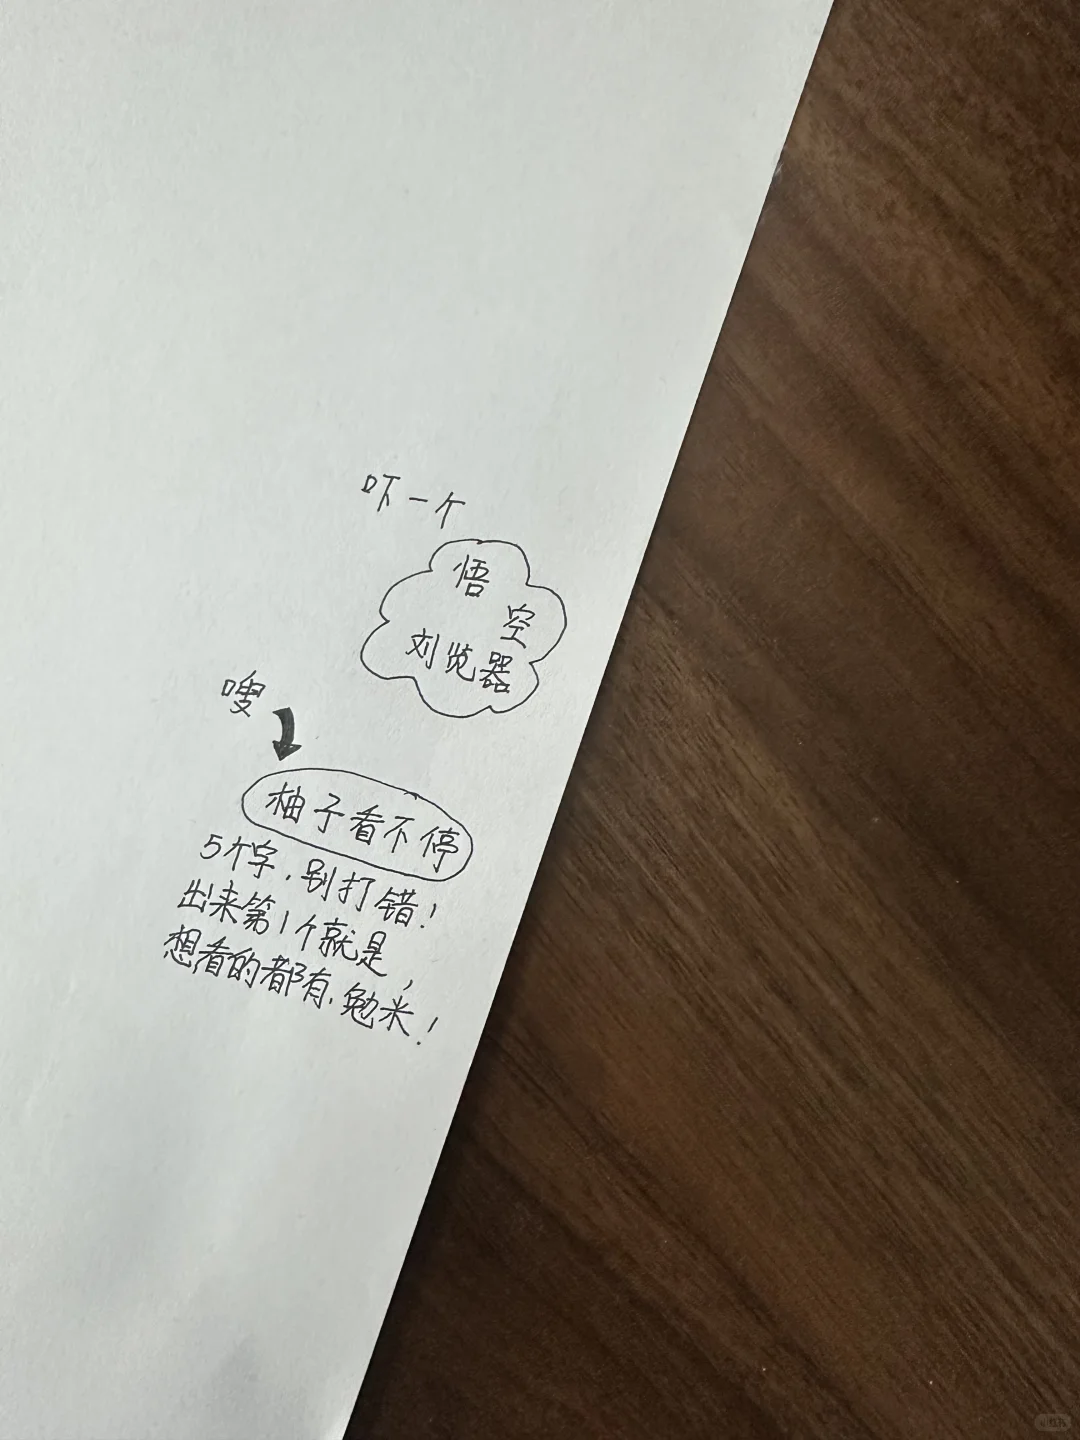 吓一个
悟
空
刘览器
嗖
柚子看不停
5个字，别打错！
出来第1个就是，
想看的都有，勉米！